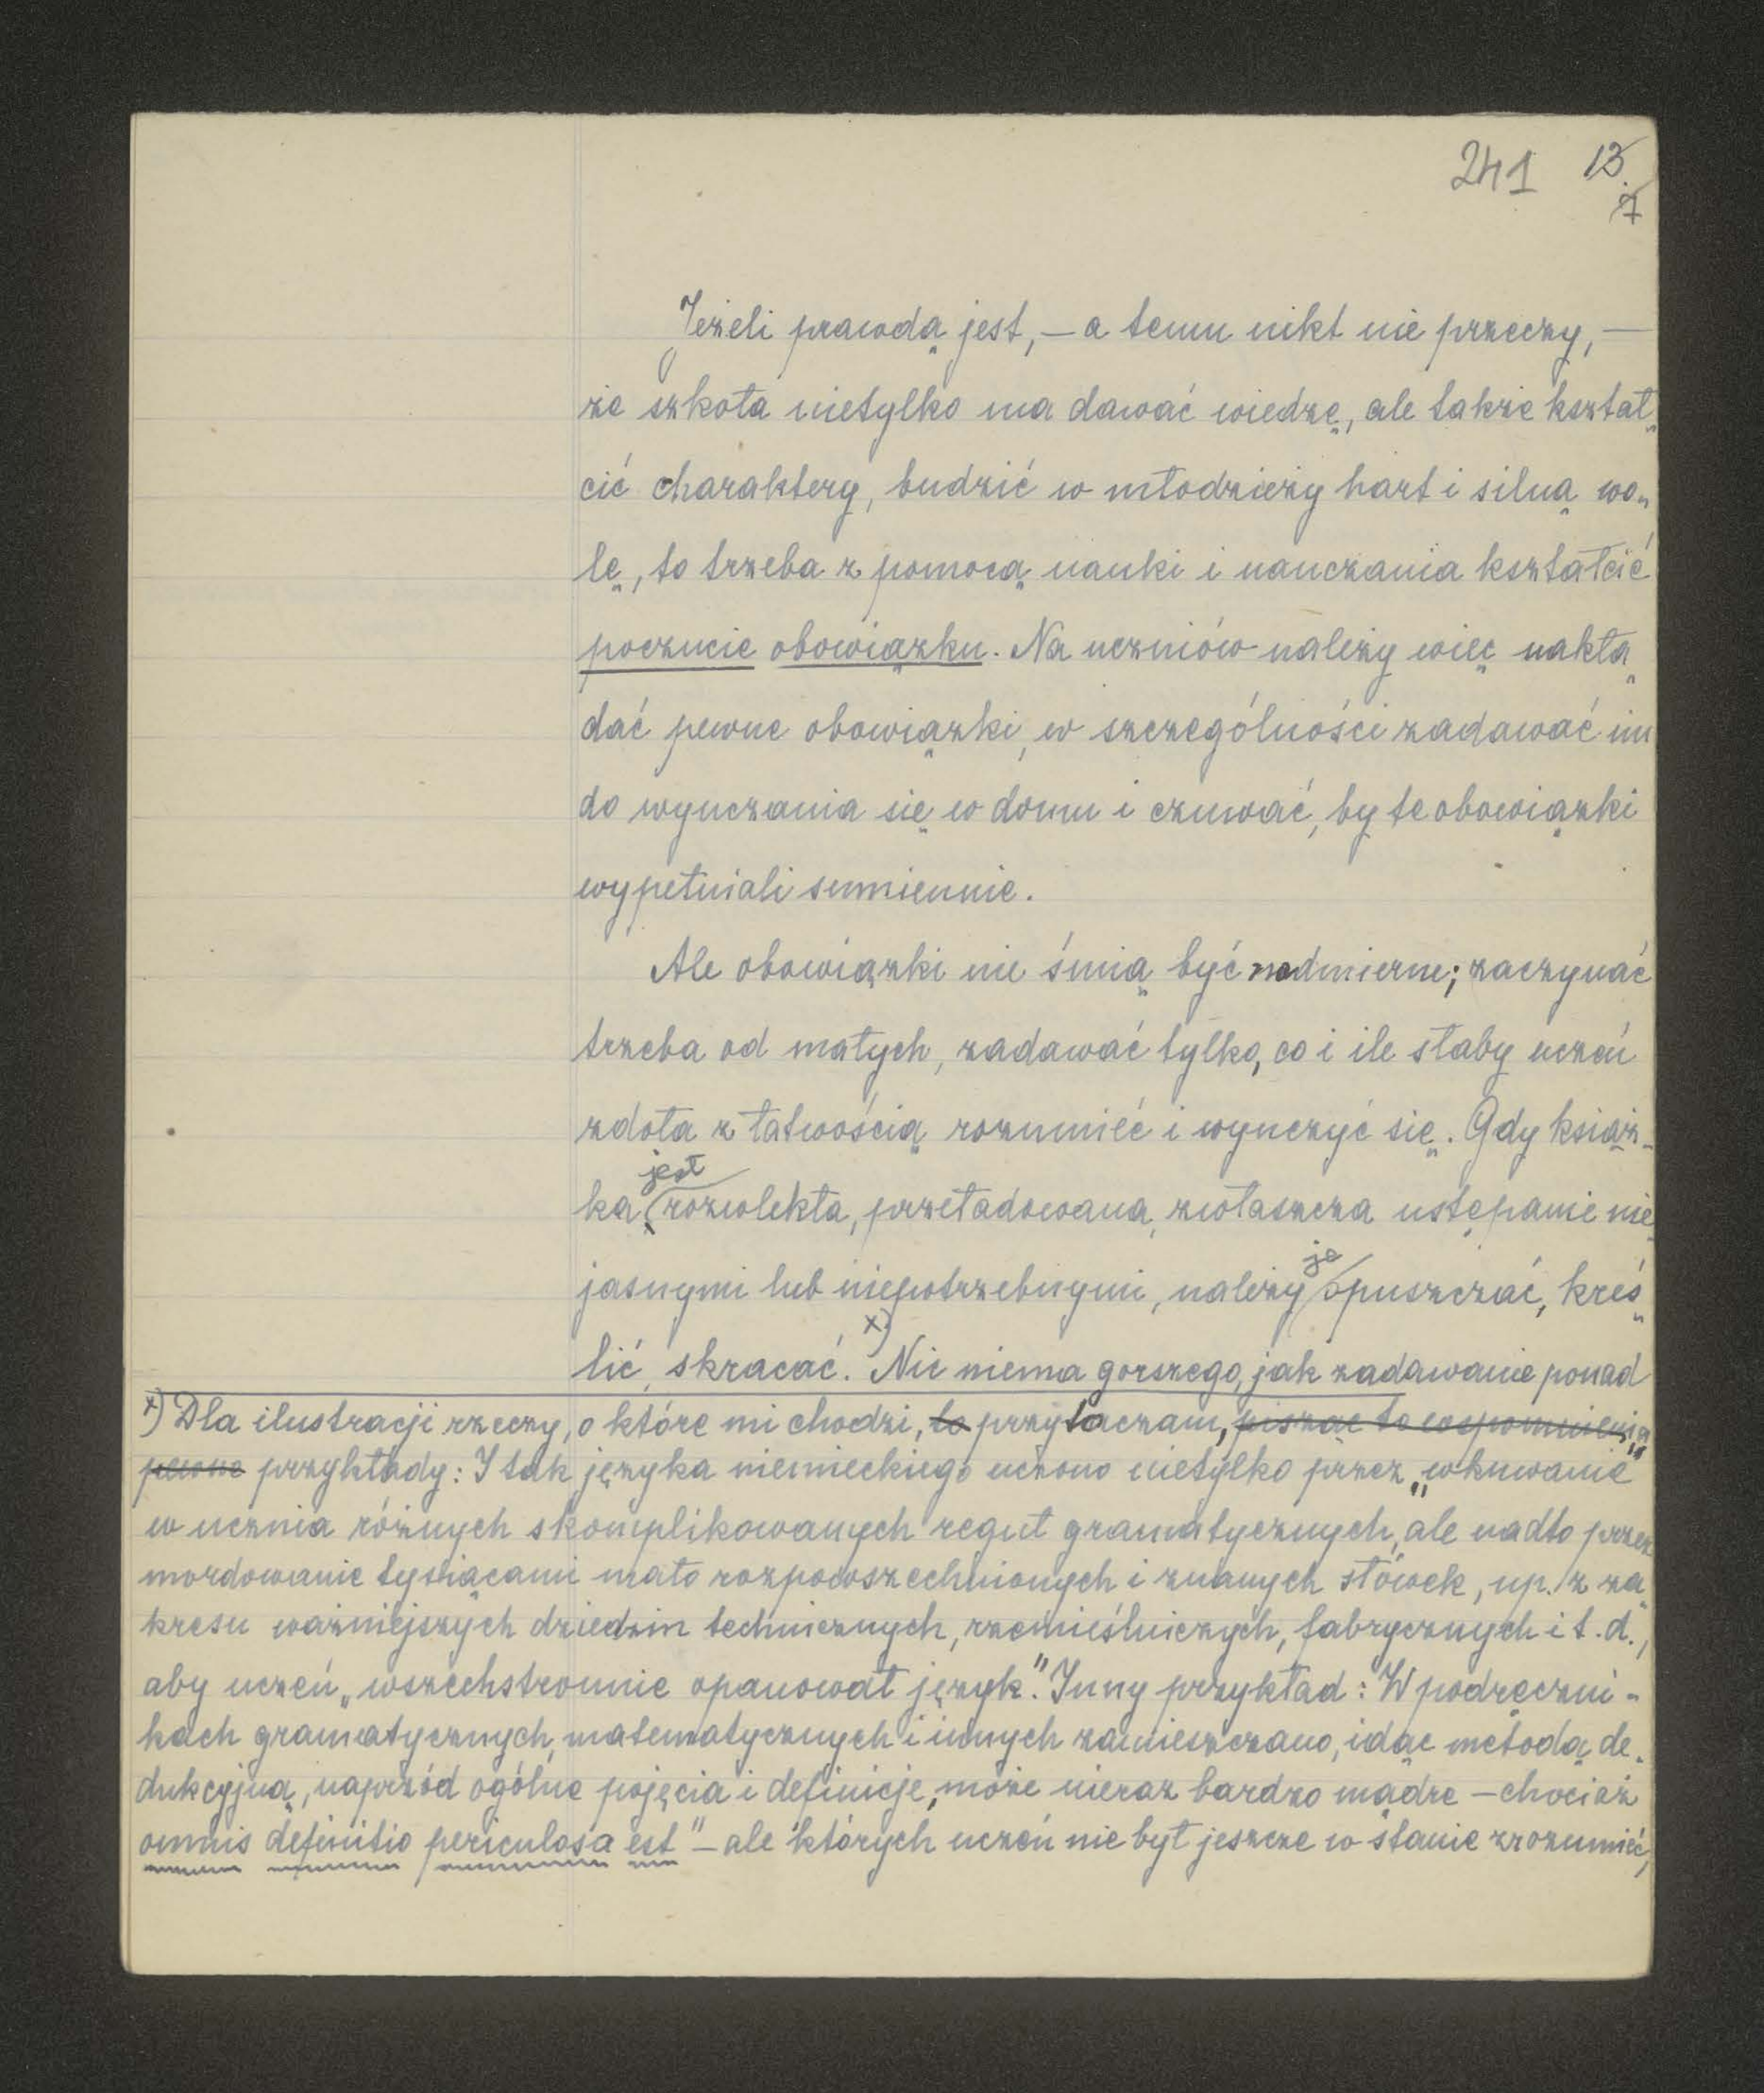 241 13.
7
Jeżeli prawdą jest, – a temu nikt nie przeczy, –
że szkoła nietylko ma dawać wiedzę, ale także kształ„
cić charaktery, budzić w młodzieży hart i silną wo„
lę, to trzeba z pomocą nauki i nauczania kształcić
poczucie obowiązku. Na uczniów należy więc nakła„
dać pewne obowiązki, w szczególności zadawać im
do wyuczania się w domu i czuwać, by te obowiązki
wypełniali sumiennie.
Ale obowiązki nie śmią być nadmierne; zaczynać
trzeba od małych, zadawać tylko, co i ile słaby uczeń
zdoła z łatwością rozumieć i wyuczyć się. Gdy książ-
jest
ka rozwlekła, przeładowana, zwłaszcza ustępami nie„
ją
jasnymi lub niepotrzebnymi, należy opuszczać, kreś„
lić, skracać. x) Nic niema gorszego, jak zadawanie ponad
x) Dla ilustracji rzeczy, o które mi chodzi, to przytaczam, pisząc te wspomnienia„
pewne przykłady: I tak języka niemieckiego uczono nietylko przez „wkuwanie"
w ucznia różnych skomplikowanych reguł gramatycznych, ale nadto przez
mordowanie tysiącami mało rozpowszechnionych i znanych słówek, np. z za„
kresu ważniejszych dziedzin technicznych, rzemieślniczych, fabrycznych i t. d.,
aby uczeń „wszechstronnie opanował język". Inny przykład: W podręczni-
kach gramatycznych, matematycznych i innych zamieszczano, idąc metodą de„
dukcyjną, naprzód ogólne pojęcia i definicje, może nieraz bardzo mądre – chociaż
omnis definitio periculosa est" – ale których uczeń nie był jeszcze w stanie zrozumieć,